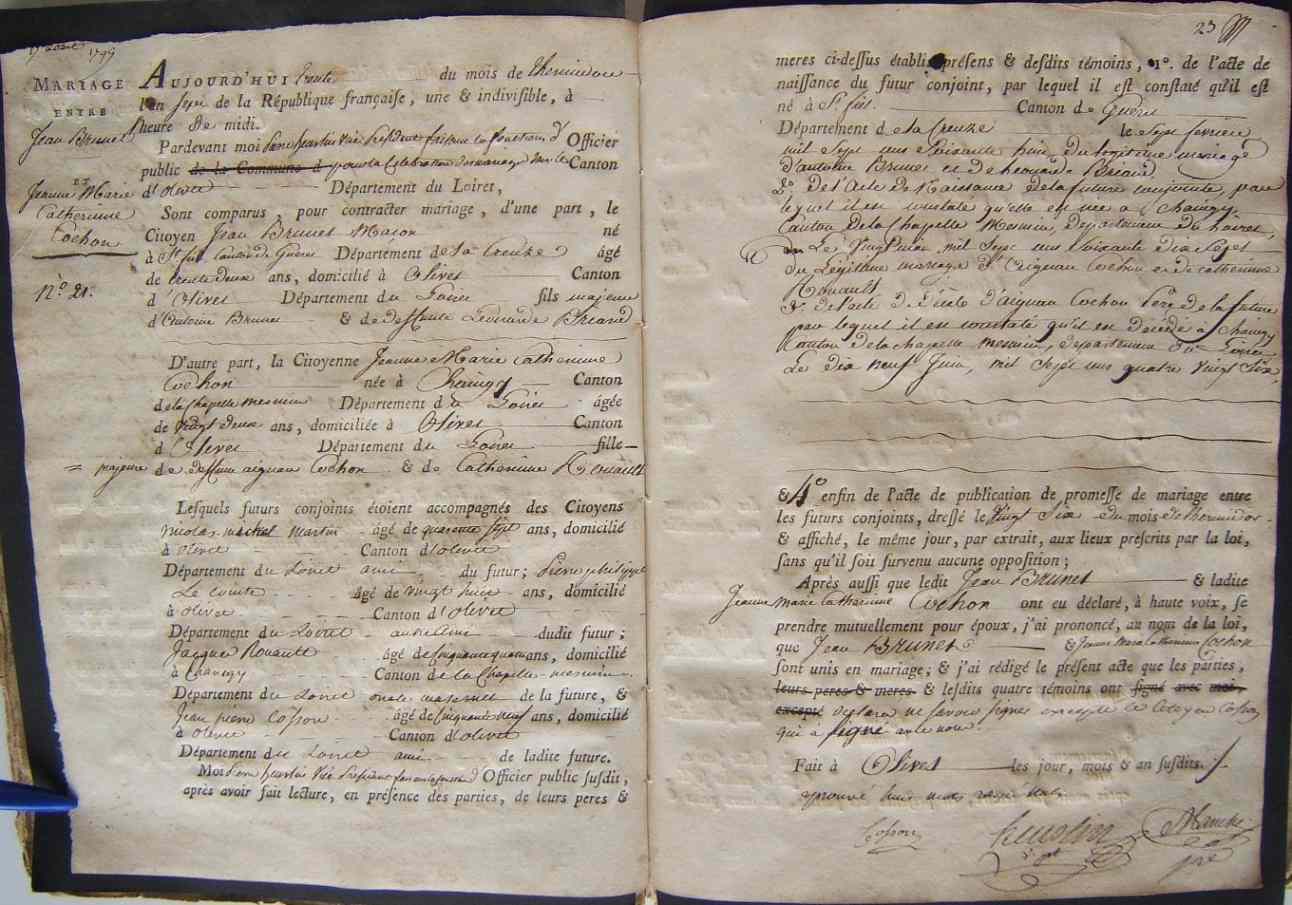 17 août 1799
MARIAGE
ENTRE
Jean Brunet
ET
Jeanne Marie
Catherinne
Cochon
N.º 21.
AUJOURD'HUI trente du mois de thermidor
l'an sept de la République française, une & indivisible, à
heure de midi.
Pardevant moi vice président faisant les fonctions d' Officier
public de la Commune d pour la célébration des mariages dans le Canton
d'olivet Département du Loiret,
Sont comparus, pour contracter mariage, d'une part, le
Citoyen Jean Brunet Maçon né
à St fié. Canton de Guéret Département de la Creuze âgé
de trente deux ans, domicilié à Olivet Canton
d'Olivet Département du Loiret fils majeur
d'Antoine Brunet & de deffunte Leonarde Briand
D'autre part, la Citoyenne Jeanne Marie Catherinne
Cochon née à Chaingy Canton
de la Chapelle mesmin Département du Loiret âgée
de vingt deux ans, domiciliée à Olivet Canton
d'Olivet Département du Loiret fille
majeure de deffunt aignan Cochon & de Catherinne Rouault
Lesquels futurs conjoints étoient accompagnés des Citoyens
Nicolas michel martin âgé de quarente sept ans, domicilié
à olivet Canton d'olivet
Département du Loiret ami du futur; Pierre philippe
Le comte âgé de vingt huit ans, domicilié
à olivet Canton d'olivet
Département du Loiret aussi ami dudit futur;
Jacques Rouault âgé de cinquante quatre ans, domicilié
à Chaingy Canton de la Chapelle-mesmin
Département du Loiret oncle maternel de la future, &
Jean pierre Cosson âgé de cinquante neuf ans, domicilié
à olivet Canton d'olivet
Département du Loiret ami de ladite future.
Moi vice président faisant les fonctions d'Officier public susdit,
après avoir fait lecture, en présence des parties, de leurs peres &
23
meres ci-dessus établis présens & desdits témoins, 1º. de l'acte de
naissance du futur conjoint, par lequel il est constaté qu'il est
né à St fié. Canton de Guéret
Département de la Creuze le sept fevrier
mil sept cens soixante huit du légitime mariage
d'antoine Brunet et de Leonarde Briand.
2º. de l'acte de Naissance de la future conjointe, par
lequel il est constaté qu'elle est née à Chaingy
Canton de la Chapelle Mesmin, Département du Loiret,
Le vingt mil sept cens soixante dix sept
du Légitime mariage d'Aignan Cochon et de catherinne
Rouault
3º. de l'acte de Décès d'aignan Cochon Père de la future
par lequel il est constaté qu'il est décédé à Chaingy
Canton de la chapelle mesmin, département du Loiret
Le dix neuf Juin, mil sept cens quatre vingt six,
& 4º enfin de l'acte de publication de promesse de mariage entre
les futurs conjoints, dressé le vingt six du mois de thermidor
& affiché, le même jour, par extrait, aux lieux prescrits par la loi,
sans qu'il soit survenu aucune opposition;
Après aussi que ledit Jean Brunet & ladite
Jeanne Marie Catherinne Cochon ont eu déclaré, à haute voix, se
prendre mutuellement pour époux, j'ai prononcé, au nom de la loi,
que Jean Brunet & Jeanne Marie Catherinne Cochon
sont unis en mariage; & j'ai rédigé le présent acte que les parties,
leurs peres & meres & lesdits quatre témoins ont signé avec moi,
excepté déclaré ne savoir signer excepté le citoyen Cosson
qui a signé avec nous.
Fait à Olivet les jour, mois & an susdits.
approuvé huit mots rayés nuls
Cosson